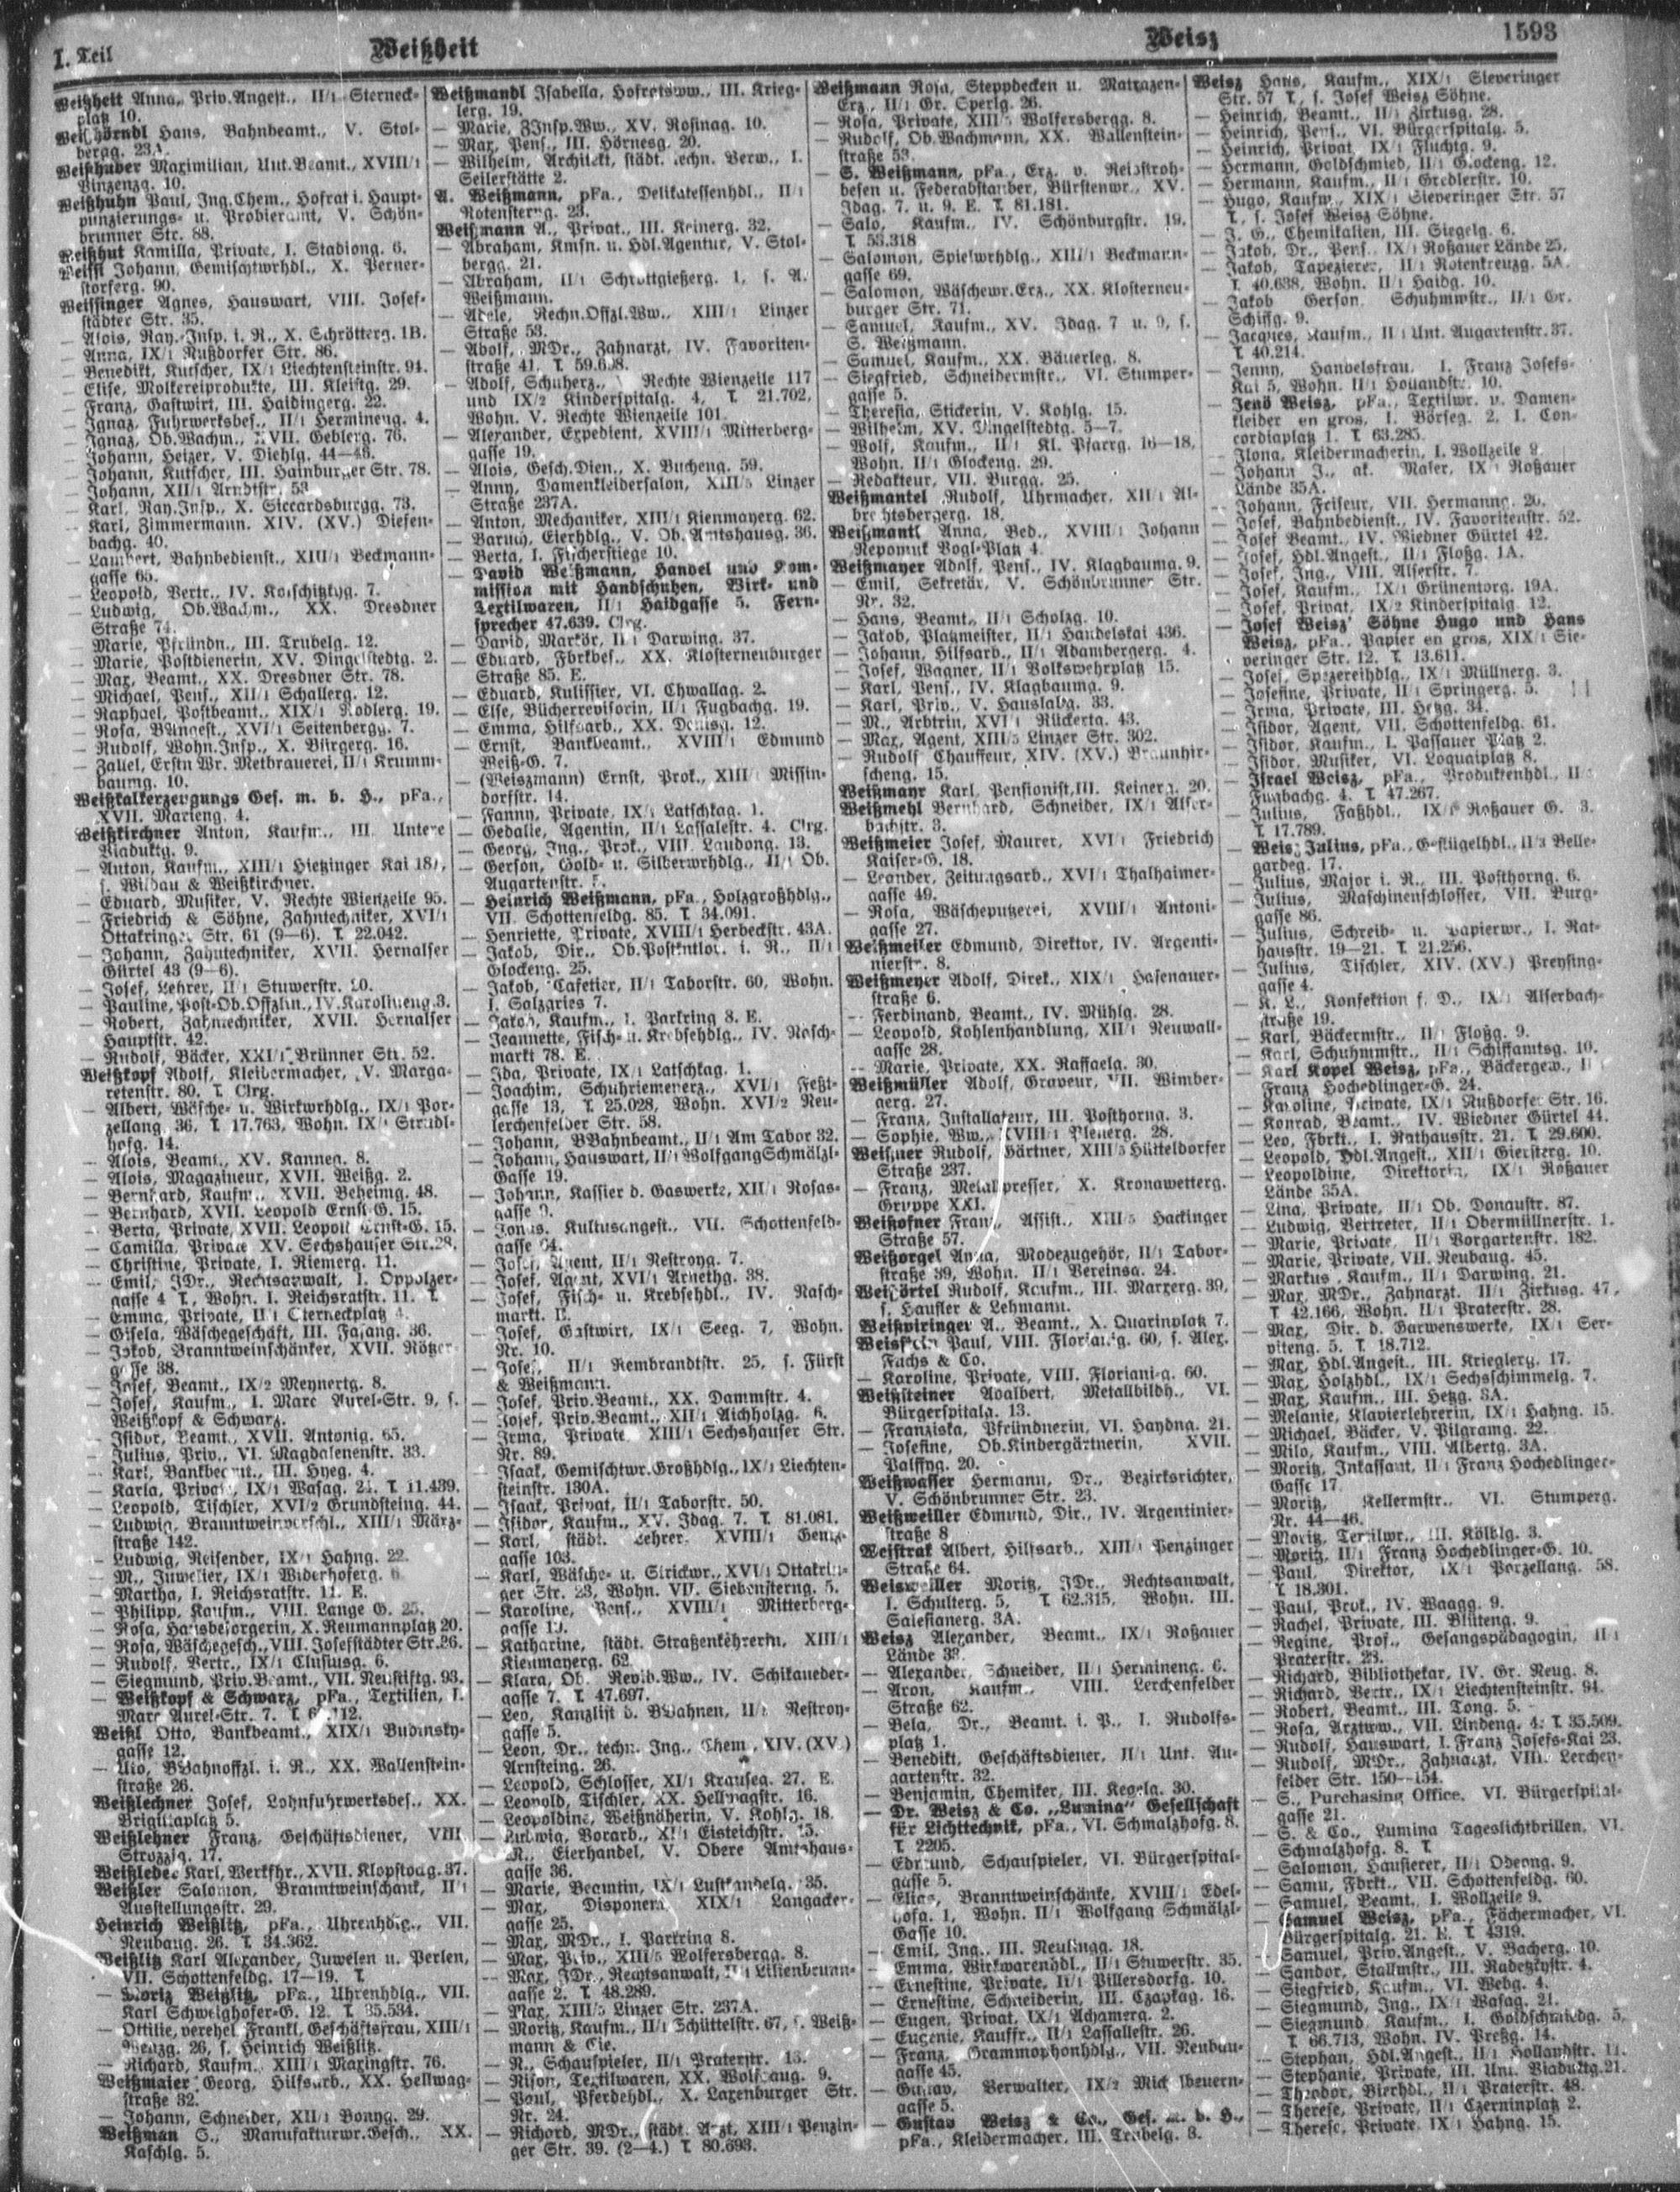 I. Teil
Weißheit
Weisz
1593
Weißheit Anna, Priv.Angest., II/1 Sterneck-
platz 10.
Weißhörndl Hans, Bahnbeamt., V. Stol-
bergg. 23A.
Weißhuber Maximilian, Unt.Beamt., XVIII/1
Vinzenzg. 10.
Weißhuhn Paul, Ing.Chem., Hofrat i. Haupt-
punzierungs- u. Probieramt, V. Schön-
brunner Str. 88.
Weißhut Kamilla, Private, I. Stadiong. 6.
Weissl Johann, Gemischtwrhdl., X. Perner-
storferg. 90.
Weissinger Agnes, Hauswart, VIII. Josef-
städter Str. 35.
— Alois, Ray.Insp. i. R., X. Schrötterg. 1B.
— Anna, IX/1 Nußdorfer Str. 86.
— Benedikt, Kutscher, IX/1 Liechtensteinstr. 94.
— Elise, Molkereiprodukte, III. Kleistg. 29.
— Franz, Gastwirt, III. Haidingerg. 22.
— Ignaz, Fuhrwerksbes., II/1 Hermineng. 4.
— Ignaz, Ob.Wachm., XVII. Geblerg. 76.
— Johann, Heizer, V. Diehlg. 44—48.
— Johann, Kutscher, III. Hainburger Str. 78.
— Johann, XII/1 Arndtstr. 53.
— Karl, Ray.Insp., X. Siccardsburgg. 73.
— Karl, Zimmermann, XIV. (XV.) Diefen-
bachg. 40.
— Lambert, Bahnbedienst., XIII/1 Beckmann-
gasse 65.
— Leopold, Vertr., IV. Kolschitzkyg. 7.
— Ludwig, Ob.Wachm., XX. Dresdner
Straße 74.
— Marie, Pfründn., III. Trubelg. 12.
— Marie, Postdienerin, XV. Dingelstedtg. 2.
— Max, Beamt., XX. Dresdner Str. 78.
— Michael, Pens., XII/1 Schallerg. 12.
— Raphael, Postbeamt., XIX/1 Kodlerg. 19.
— Rosa, BAngest., XVI/1 Seitenbergg. 7.
— Rudolf, Wohn.Insp., X. Bürgerg. 16.
— Zallel, Erstn Wr. Metbrauerei, II/1 Krumm-
baumg. 10.
Weißkalkerzeugungs Ges. m. b. H., pFa.,
XVII. Marieng. 4.
Weißkirchner Anton, Kaufm., III. Untere
Viaduktg. 9.
— Anton, Kaufm., XIII/1 Hietzinger Kai
s. Wildau & Weißkirchner.
— Eduard, Musiker, V. Rechte Wienzeile 95.
— Friedrich & Söhne, Zahntechniker, XVI/1
Ottakringer Str. 61 (9—6). T. 22.042.
— Johann, Zahntechniker, XVII. Hernalser
Gürtel 43 (9—6).
— Josef, Lehrer, II/1 Stuwerstr. 20.
— Pauline, Post-Ob.Offzlin., IV. Karolineng. 3.
— Robert, Zahntechniker, XVII. Hernalser
Hauptstr. 42.
— Rudolf, Bäcker, XXI/1 Brünner Str. 52.
Weißkopf Adolf, Kleidermacher, V. Marga-
retenstr. 80. T. Clrg.
— Albert, Wäsche- u. Wirkwrhdlg., IX/1 Por-
zellang. 36. T. 17.763, Wohn. IX/1 Strudl-
hofg. 14.
— Alois, Beamt., XV. Kanneg. 8.
— Alois, Magazineur, XVII. Weißg. 2.
— Bernhard, Kaufm., XVII. Beheimg. 48.
— Bernhard, XVII. Leopold Ernst-G. 15.
— Berta, Private, XVII. Leopold Ernst-G. 15.
— Camilla, Private XV. Sechshauser Str. 28.
— Christine, Private, I. Riemerg. 11.
— Emil, JDr., Rechtsanwalt, I. Oppolzer-
gasse 4 T., Wohn. I. Reichsratstr. 11. T.
— Emma, Private, II/1 Sterneckplatz 4.
— Gisela, Wäschegeschäft, III. Fasang. 36.
— Jakob, Branntweinschänker, XVII. Rötzer-
gasse 38.
— Josef, Beamt., IX/2 Meynertg. 8.
— Josef, Kaufm., I. Marc Aurel-Str. 9, s.
Weißkopf & Schwarz.
— Isidor, Beamt., XVII. Antonig. 65.
— Julius, Priv., VI. Magdalenenstr. 33.
— Karl, Bankbeamt., III. Hyeg. 4.
— Karla, Private, IX/1 Wasag. T. 11.439.
— Leopold, Tischler, XVI/2 Grundsteing. 44.
— Ludwig, Branntweinverschl., XIII/1 März-
straße 142.
— Ludwig, Reisender, IX/1 Hahng. 22.
— M., Juwelier, IX/1 Widerhoferg. 6
— Martha, I. Reichsratstr. 11. E.
— Philipp, Kaufm., VIII. Lange G. 25.
— Rosa, Hausbesorgerin, X. Reumannplatz 20.
— Rosa, Wäschegesch., VIII. Josefstädter Str. 26.
— Rudolf, Vertr., IX/1 Clusiusg. 6.
— Siegmund, Priv.Beamt., VII. Neustiftg. 93.
— Weißkopf & Schwarz, pFa., Textilien, I.
Marc Aurel-Str. 7. T.
Weißl Otto, Bankbeamt., XIX/1 Budinsky-
gasse 12.
— BBahnoffzl. i. R., XX. Wallenstein-
straße 26.
Weißlechner Josef, Lohnfuhrwerksbes., XX.
Brigittaplatz 5.
Weißlehner Franz, Geschäftsdiener, VIII
Strozzig. 17.
Weißleder Karl, Werkfhr., XVII. Klopstockg. 37.
Weißler Salomon, Branntweinschank, II/1
Ausstellungsstr. 29.
Heinrich Weißlitz, pFa., Uhrenhdlg., VII.
Neubaug. 26. T. 34.362.
Weißlitz Karl Alexander, Juwelen u. Perlen,
VII. Schottenfeldg. 17—19. T.
— Moriz Weißlitz, pFa., Uhrenhdlg., VII.
Karl Schweighofer-G. 12. T. 35.534.
— Ottilie, verehel. Frankl, Geschäftsfrau, XIII/1
Penzg. 26, s. Heinrich Weißlitz.
— Richard, Kaufm., XIII/1 Maxingstr. 76.
Weißmaier Georg, Hilfsarb., XX. Hellwag-
straße 32.
— Johann, Schneider, XII/1 Bonyg. 29.
Weißman S., Manufakturwr.Gesch., XX.
Kaschlg. 5.
Weißmandl Isabella, Hofratsww., III. Krieg-
lerg. 19.
— Marie, ZInsp.Ww., XV. Rosinag. 10.
— Max, Pens., III. Hörnesg. 20.
— Wilhelm, Architekt, städt. techn. Verw., I.
Seilerstätte 2.
A. Weißmann, pFa., Delikatessenhdl., II/1
Rotensterng. 23.
Weißmann A., Privat., III. Keinerg. 32.
— Abraham, Kmsn. u. Hdl.Agentur, V. Stol-
bergg. 21.
— Abraham, II/1 Schrottgießerg. 1, s. A.
Weißmann.
— Adele, Rechn.Offzl.Ww., XIII/1 Linzer
Straße 53.
— Adolf, MDr., Zahnarzt, IV. Favoriten-
straße 41. T. 59.6
— Adolf, Schuherz., Rechte Wienzeile 117
und IX/2 Kinderspitalg. 4, T. 21.702,
Wohn. V. Rechte Wienzeile 101.
— Alexander, Expedient, XVIII/1 Mitterberg-
gasse 19.
— Alois, Gesch.Dien., X. Bucheng. 59.
— Anny, Damenkleidersalon, XIII/5 Linzer
Straße 237A.
— Anton, Mechaniker, XIII/1 Kienmayerg. 62.
— Baruch, Eierhdlg., V. Ob. Amtshausg. 36.
— Berta, I. Fischerstiege 10.
— David Weißmann, Handel und Kom-
mission mit Handschuhen, Wirk- und
Textilwaren, II/1 Haidgasse 5. Fern-
sprecher 47.639. Clrg.
— David, Markör, II/1 Darwing. 37.
— Eduard, Fbrkbes., XX. Klosterneuburger
Straße 85. E.
— Eduard, Kulissier, VI. Chwallag. 2.
— Else, Bücherrevisorin, II/1 Fugbachg. 19.
— Emma, Hilfsarb., XX. Denisg. 12.
— Ernst, Bankbeamt., XVIII/1 Edmund
Weiß-G. 7.
— (Weiszmann) Ernst, Prok., XIII/1 Missin-
dorfstr. 14.
— Fanny, Private, IX/1 Latschkag. 1.
— Gedalie, Agentin, II/1 Lassalestr. 4. Clrg.
— Georg, Ing., Prok., VIII. Laudong. 13.
— Gerson, Gold- u. Silberwrhdlg., II/1 Ob.
Augartenstr. 5.
— Heinrich Weißmann, pFa., Holzgroßhdlg.,
VII. Schottenfeldg. 85. T. 34.091.
— Henriette, Private, XVIII/1 Herbeckstr. 43A.
— Jakob, Dir., Ob.Postkntlor. i. R., II/1
Glockeng. 25.
— Jakob, Cafetier, II/1 Taborstr. 60, Wohn.
I. Salzgries 7.
— Jakob, Kaufm., I. Parkring 8. E.
— Jeannette, Fisch- u. Krebsehdlg., IV. Nasch-
markt 78. E.
— Ida, Private, IX/1 Latschkag. 1.
— Joachim, Schuhriemenerz., XVI/1 Feßt-
gasse 13, T. 25.028, Wohn. XVI/2 Neu-
lerchenfelder Str. 58.
— Johann, BBahnbeamt., II/1 Am Tabor 32.
— Johann, Hauswart, II/1 Wolfgang Schmälzl-
Gasse 19.
— Johann, Kassier d. Gaswerke, XII/1 Rosas-
gasse 9.
— Jonas, Kultusangest., VII. Schottenfeld-
gasse 64.
— Josef, Agent, II/1 Nestroyg. 7.
— Josef, Agent, XVI/1 Arnethg. 38.
— Josef, Fisch- u. Krebsehdl., IV. Nasch-
markt. E.
— Josef, Gastwirt, IX/1 Seeg. 7, Wohn.
Nr. 10.
— Josef, II/1 Rembrandtstr. 25, s. Fürst
& Weißmann.
— Josef, Priv.Beamt., XX. Dammstr. 4.
— Josef, Priv.Beamt., XII/1 Aichholzg. 6.
— Irma, Private, XIII/1 Sechshauser Str.
Nr. 89.
— Isaak, Gemischtwr.Großhdlg., IX/1 Liechten-
steinstr. 130A.
— Isaak, Privat, II/1 Taborstr. 50.
— Isidor, Kaufm., XV. Idag. 7. T. 81.081.
— Karl, städt. Lehrer, XVIII/1 Gentz-
gasse 103.
— Karl, Wäsche- u. Strickwr., XVI/1 Ottakrin-
ger Str. 23, Wohn. VII. Siebensterng. 5.
— Karoline, Pens., XVIII/1 Mitterberg-
gasse 19.
— Katharine, städt. Straßenkehrerin, XIII/1
Kienmayerg. 62.
— Klara, Ob. Revid.Ww., IV. Schikaneder-
gasse 7. T. 47.697.
— Leo, Kanzlist d. BBahnen, II/1 Nestroy-
gasse 5.
— Leon, Dr., techn. Ing., Chem., XIV. (XV.)
Arnsteing. 26.
— Leopold, Schlosser, XI/1 Krauseg. 27. E.
— Leopold, Tischler, XX. Hellwagstr. 16.
— Leopoldine, Weißnäherin, V. Kohlg. 18.
— Ludwig, Vorarb., XI/1 Eisteichstr. 15.
— M., Eierhandel, V. Obere Amtshaus-
gasse 36.
— Marie, Beamtin, IX/1 Lustkandelg. 35.
— Max, Disponent, XIX/1 Langacker-
gasse 25.
— Max, MDr., I. Parkring 8.
— Max, Priv., XIII/5 Wolfersbergg. 8.
— Max, JDr., Rechtsanwalt, II/1 Lilienbrunn-
gasse 2. T. 48.289.
— Max, XIII/5 Linzer Str. 237A.
— Moritz, Kaufm., II/1 Schüttelstr. 67, s. Weiß-
mann & Cie.
— N., Schauspieler, II/1 Praterstr. 13.
— Nison, Textilwaren, XX. Wolfsaug. 9.
— Paul, Pferdehdl., X. Laxenburger Str.
Nr. 24.
— Richard, MDr., städt. Arzt, XIII/1 Penzin-
ger Str. 39. (2—4.) T. 80.693.
Weißmann Rosa, Steppdecken u. Matrazen-
Erz., II/1 Gr. Sperlg. 26.
— Rosa, Private, XIII/5 Wolfersbergg. 8.
— Rudolf, Ob.Wachmann, XX. Wallenstein-
straße 53.
— S. Weißmann, pFa., Erz. v. Reisstroh-
besen u. Federabstauber, Bürstenwr., XV.
Idag. 7. u. 9. E. T. 81.181.
— Salo, Kaufm., IV. Schönburgstr. 19.
T. 53.318
— Salomon, Spielwrhdlg., XIII/1 Beckmann-
gasse 69.
— Salomon, Wäschewr.Erz., XX. Klosterneu-
burger Str. 71.
— Samuel, Kaufm., XV. Idag. 7 u. 9, s.
S. Weißmann.
— Samuel, Kaufm., XX. Bäuerleg. 8.
— Siegfried, Schneidermstr., VI. Stumper-
gasse 5.
— Theresia, Stickerin, V. Kohlg. 15.
— Wilhelm, XV. Dingelstedtg. 5—7.
— Wolf, Kaufm., II/1 Kl. Pfarrg. 16—18,
Wohn. II/1 Glockeng. 29.
— Redakteur, VII. Burgg. 25.
Weißmantel Rudolf, Uhrmacher, XII/1 Al-
brechtsbergerg. 18.
Weißmantl Anna, Bed., XVIII/1 Johann
Nepomuk Vogl-Platz 4.
Weißmayer Adolf, Pens., IV. Klagbaumg. 9.
— Emil, Sekretär, V. Schönbrunner Str.
Nr. 32.
— Hans, Beamt., II/1 Scholzg. 10.
— Jakob, Platzmeister, II/1 Handelskai 436.
— Johann, Hilfsarb., II/1 Adambergerg. 4.
— Josef, Wagner, II/1 Volkswehrplatz 15.
— Karl, Pens., IV. Klagbaumg. 9.
— Karl, Priv., V. Hauslabg. 33.
— M., Arbtrin, XVI/1 Rückertg. 43.
— Max, Agent, XIII/5 Linzer Str. 302.
— Rudolf Chauffeur, XIV. (XV.) Braunhir-
scheng. 15.
Weißmayr Karl, Pensionist, III. Keinerg. 20.
Weißmehl Bernhard, Schneider, IX/1 Alser-
bachstr. 3.
Weißmeier Josef, Maurer, XVI/1 Friedrich
Kaiser-G. 18.
— Leander, Zeitungsarb., XVI/1 Thalhaimer-
gasse 49.
— Rosa, Wäscheputzerei, XVIII/1 Antoni-
gasse 27.
Weißmeiler Edmund, Direktor, IV. Argenti-
nierstr. 8.
Weißmeyer Adolf, Direk., XIX/1 Hasenauer-
straße 6.
— Ferdinand, Beamt., IV. Mühlg. 28.
— Leopold, Kohlenhandlung, XII/1 Neuwall-
gasse 28.
— Marie, Private, XX. Raffaelg. 30.
Weißmüller Adolf, Graveur, VII. Wimber-
gerg. 27.
— Franz, Installateur, III. Posthorng. 3.
— Sophie, Ww., XVIII/1 Plenerg. 28.
Weißner Rudolf, Gärtner, XIII/5 Hütteldorfer
Straße 237.
— Franz, Metallpresser, X. Kronawetterg.
Gruppe XXI.
Weißhofner Franz, Assist., XIII/5 Hackinger
Straße 57.
Weißorgel Anna, Modezugehör, II/1 Tabor-
straße 39, Wohn. II/1 Vereinsg. 24.
Weißörtel Rudolf, Kaufm., III. Marxerg. 39,
s. Haufler & Lehmann.
Weißpiringer A., Beamt., X. Quarinplatz 7.
Weißstein Paul, VIII. Florianig. 60, s. Alex.
Fuchs & Co.
— Karoline, Private, VIII. Floriani-g. 60.
Weißsteiner Adalbert, Metallbildh., VI.
Bürgerspitalg. 13.
— Franziska, Pfründnerin, VI. Haydng. 21.
— Josefine, Ob.Kindergärtnerin, XVII.
Palffyg. 20.
Weißwasser Hermann, Dr., Bezirksrichter,
V. Schönbrunner Str. 23.
Weißweiller Edmund, Dir., IV. Argentinier-
straße 8
Weistrak Albert, Hilfsarb., XIII/1 Penzinger
Straße 64.
Weisweiller Moritz, JDr., Rechtsanwalt,
I. Schulerg. 5, T. 62.315, Wohn. III.
Salesianerg. 3A.
Weisz Alexander, Beamt., IX/1 Roßauer
Lände 33.
— Alexander, Schneider, II/1 Hermineng. 6.
— Aron, Kaufm., VIII. Lerchenfelder
Straße 62.
— Bela, Dr., Beamt. i. P., I. Rudolfs-
platz 1.
— Benedikt, Geschäftsdiener, II/1 Unt. Au-
gartenstr. 32.
— Benjamin, Chemiker, III. Kegelg. 30.
— Dr. Weisz & Co. „Lumina“ Gesellschaft
für Lichttechnik, pFa., VI. Schmalzhofg. 8.
T. 2205.
— Edmund, Schauspieler, VI. Bürgerspital-
gasse 5.
— Elias, Branntweinschänke, XVIII/1 Edel-
hofg. 1, Wohn. II/1 Wolfgang Schmälzl-
Gasse 10.
— Emil, Ing., III. Neulingg. 18.
— Emma, Wirkwarenhdl., II/1 Stuwerstr. 35.
— Ernestine, Private, II/1 Pillersdorfg. 10.
— Ernestine, Schneiderin, III. Czapkag. 16.
— Eugen, Privat, IX/1 Achamerg. 2.
— Eugenie, Kauffr., II/1 Lassallestr. 26.
— Franz, Grammophonhdlg., VII. Neubau-
gasse 45.
— Gustav, Verwalter, IX/2 Michelbeuern-
gasse 5.
— Gustav Weisz & Co., Ges. m. b. H.,
pFa., Kleidermacher, III. Trubelg. 3.
Weisz Hans, Kaufm., XIX/1 Sieveringer
Str. 57 T., s. Josef Weisz Söhne.
— Heinrich, Beamt., II/1 Zirkusg. 28.
— Heinrich, Pens., VI. Bürgerspitalg. 5.
— Heinrich, Privat, IX/1 Fluchtg. 9.
— Hermann, Goldschmied, II/1 Glockeng. 12.
— Hermann, Kaufm., II/1 Gredlerstr. 10.
— Hugo, Kaufm., XIX/1 Sieveringer Str. 57
T., s. Josef Weisz Söhne.
— J. G., Chemikalien, III. Siegelg. 6.
— Jakob, Dr., Pens., IX/1 Roßauer Lände 25.
— Jakob, Tapezierer, II/1 Rotenkreuzg. 5A,
T. 40.638, Wohn. II/1 Haidg. 10.
— Jakob Gerson, Schuhmwstr., II/1 Gr.
Schiffg. 9.
— Jacques, Kaufm., II/1 Unt. Augartenstr. 37.
T. 40.214.
— Jenny, Handelsfrau, I. Franz Josefs-
Kai 5, Wohn. II/1 Hollandstr. 10.
— Jenö Weisz, pFa., Textilwr. v. Damen-
kleider en gros, I. Börseg. 2, I. Con-
cordiaplatz 1. T. 63.285.
— Ilona, Kleidermacherin, I. Wollzeile 9.
— Johann J., ak. Maler, IX/1 Roßauer
Lände 35A.
— Johann, Friseur, VII. Hermanng. 26.
— Josef, Bahnbedienst., IV. Favoritenstr. 52.
— Josef Beamt., IV. Wiedner Gürtel 42.
— Josef, Hdl.Angest., II/1 Floßg. 1A.
— Josef, Ing., VIII. Alserstr. 7.
— Josef, Kaufm., IX/1 Grünentorg. 19A.
— Josef, Privat, IX/2 Kinderspitalg. 12.
— Josef Weisz' Söhne Hugo und Hans
Weisz, pFa., Papier en gros, XIX/1 Sie-
veringer Str. 12. T. 13.611.
— Josef, Spezereihdlg., IX/1 Müllnerg. 3.
— Josefine, Private, II/1 Springerg. 5.
— Irma, Private, III. Hetzg. 34.
— Isidor, Agent, VII. Schottenfeldg. 61.
— Isidor, Kaufm., I. Passauer Platz 2.
— Isidor, Musiker, VI. Loquaiplatz 8.
— Israel Weisz, pFa., Produktenhdl., II/1
Fugbachg. 4. T. 47.267.
— Julius, Faßhdl., IX/1 Roßauer G. 3.
T. 17.789.
— Weisz Julius, pFa., Geflügelhdl., II/3 Belle-
gardeg. 17.
— Julius, Major i. R., III. Posthorng. 6.
— Julius, Maschinenschlosser, VII. Burg-
gasse 86.
— Julius, Schreib- u. Papierwr., I. Rat-
hausstr. 19—21. T. 21.256.
— Julius, Tischler, XIV. (XV.) Preysing-
gasse 4.
— K. L., Konfektion f. D., IX/1 Alserbach-
straße 19.
— Karl, Bäckermstr., II/1 Floßg. 9.
— Karl, Schuhmmstr., II/1 Schiffamtsg. 10.
— Karl Kopel Weisz, pFa., Bäckergew., II/1
Franz Hochedlinger-G. 24.
— Karoline, Private, IX/1 Nußdorfer Str. 16.
— Konrad, Beamt., IV. Wiedner Gürtel 44.
— Leo, Fbrkt., I. Rathausstr. 21. T. 29.600.
— Leopold, Hdl.Angest., XII/1 Gierstergg. 10.
— Leopoldine, Direktorin, IX/1 Roßauer
Lände 35A.
— Lina, Private, II/1 Ob. Donaustr. 87.
— Ludwig, Vertreter, II/1 Obermüllnerstr. 1.
— Marie, Private, II/1 Vorgartenstr. 182.
— Marie, Private, VII. Neubaug. 45.
— Markus, Kaufm., II/1 Darwing. 21.
— Max, MDr., Zahnarzt, II/1 Zirkusg. 47,
T. 42.166, Wohn. II/1 Praterstr. 28.
— Max, Dir. d. Garwenswerke, IX/1 Ser-
viteng. 5. T. 18.712.
— Max, Hdl.Angest., III. Krieglerg. 17.
— Max, Holzhdl., IX/1 Sechsschimmelg. 7.
— Max, Kaufm., III. Hetzg. 3A.
— Melanie, Klavierlehrerin, IX/1 Hahng. 15.
— Michael, Bäcker, V. Pilgramg. 22.
— Milo, Kaufm., VIII. Albertg. 3A.
— Moritz, Inkassant, II/1 Franz Hochedlinger-
Gasse 17.
— Moritz, Kellermstr., VI. Stumperg.
Nr. 44—46.
— Moritz, Textilwr., III. Kölblg. 3.
— Moritz, II/1 Franz Hochedlinger-G. 10.
— Paul, Direktor, IX/1 Porzellang. 58.
T. 18.301.
— Paul, Prok., IV. Waagg. 9.
— Rachel, Private, III. Blüteng. 9.
— Regine, Prof., Gesangspädagogin, II/1
Praterstr. 23.
— Richard, Bibliothekar, IV. Gr. Neug. 8.
— Richard, Vertr., IX/1 Liechtensteinstr. 94.
— Robert, Beamt., III. Tong. 5.
— Rosa, Arztww., VII. Lindeng. 4. T. 35.509.
— Rudolf, Hauswart, I. Franz Josefs-Kai 23.
— Rudolf, MDr., Zahnarzt, VIII. Lerchen-
felder Str. 150—154.
— S., Purchasing Office, VI. Bürgerspital-
gasse 21.
— S. & Co., Lumina Tageslichtbrillen, VI.
Schmalzhofg. 8. T.
— Salomon, Hausierer, II/1 Odeong. 9.
— Samu, Fbrkt., VII. Schottenfeldg. 60.
— Samuel, Beamt., I. Wollzeile 9.
— Samuel Weisz, pFa., Fächermacher, VI.
Bürgerspitalg. 21. E. T. 4319.
— Samuel, Priv.Angest., V. Bacherg. 10.
— Sandor, Stallmstr., III. Radetzkystr. 4.
— Siegfried, Kaufm., VI. Webg. 4.
— Siegmund, Ing., IX/1 Wasag. 21.
— Siegmund, Kaufm., I. Goldschmiedg. 5,
T. 66.713, Wohn. IV. Preßg. 14.
— Stephan, Hdl.Angest., II/1 Hollandstr. 11.
— Stephanie, Private, III. Unt. Viaduktg. 21.
— Theodor, Bierhdl., II/1 Praterstr. 48.
— Therese, Private, II/1 Czerninplatz 2.
— Therese, Private, IX/1 Hahng. 15.